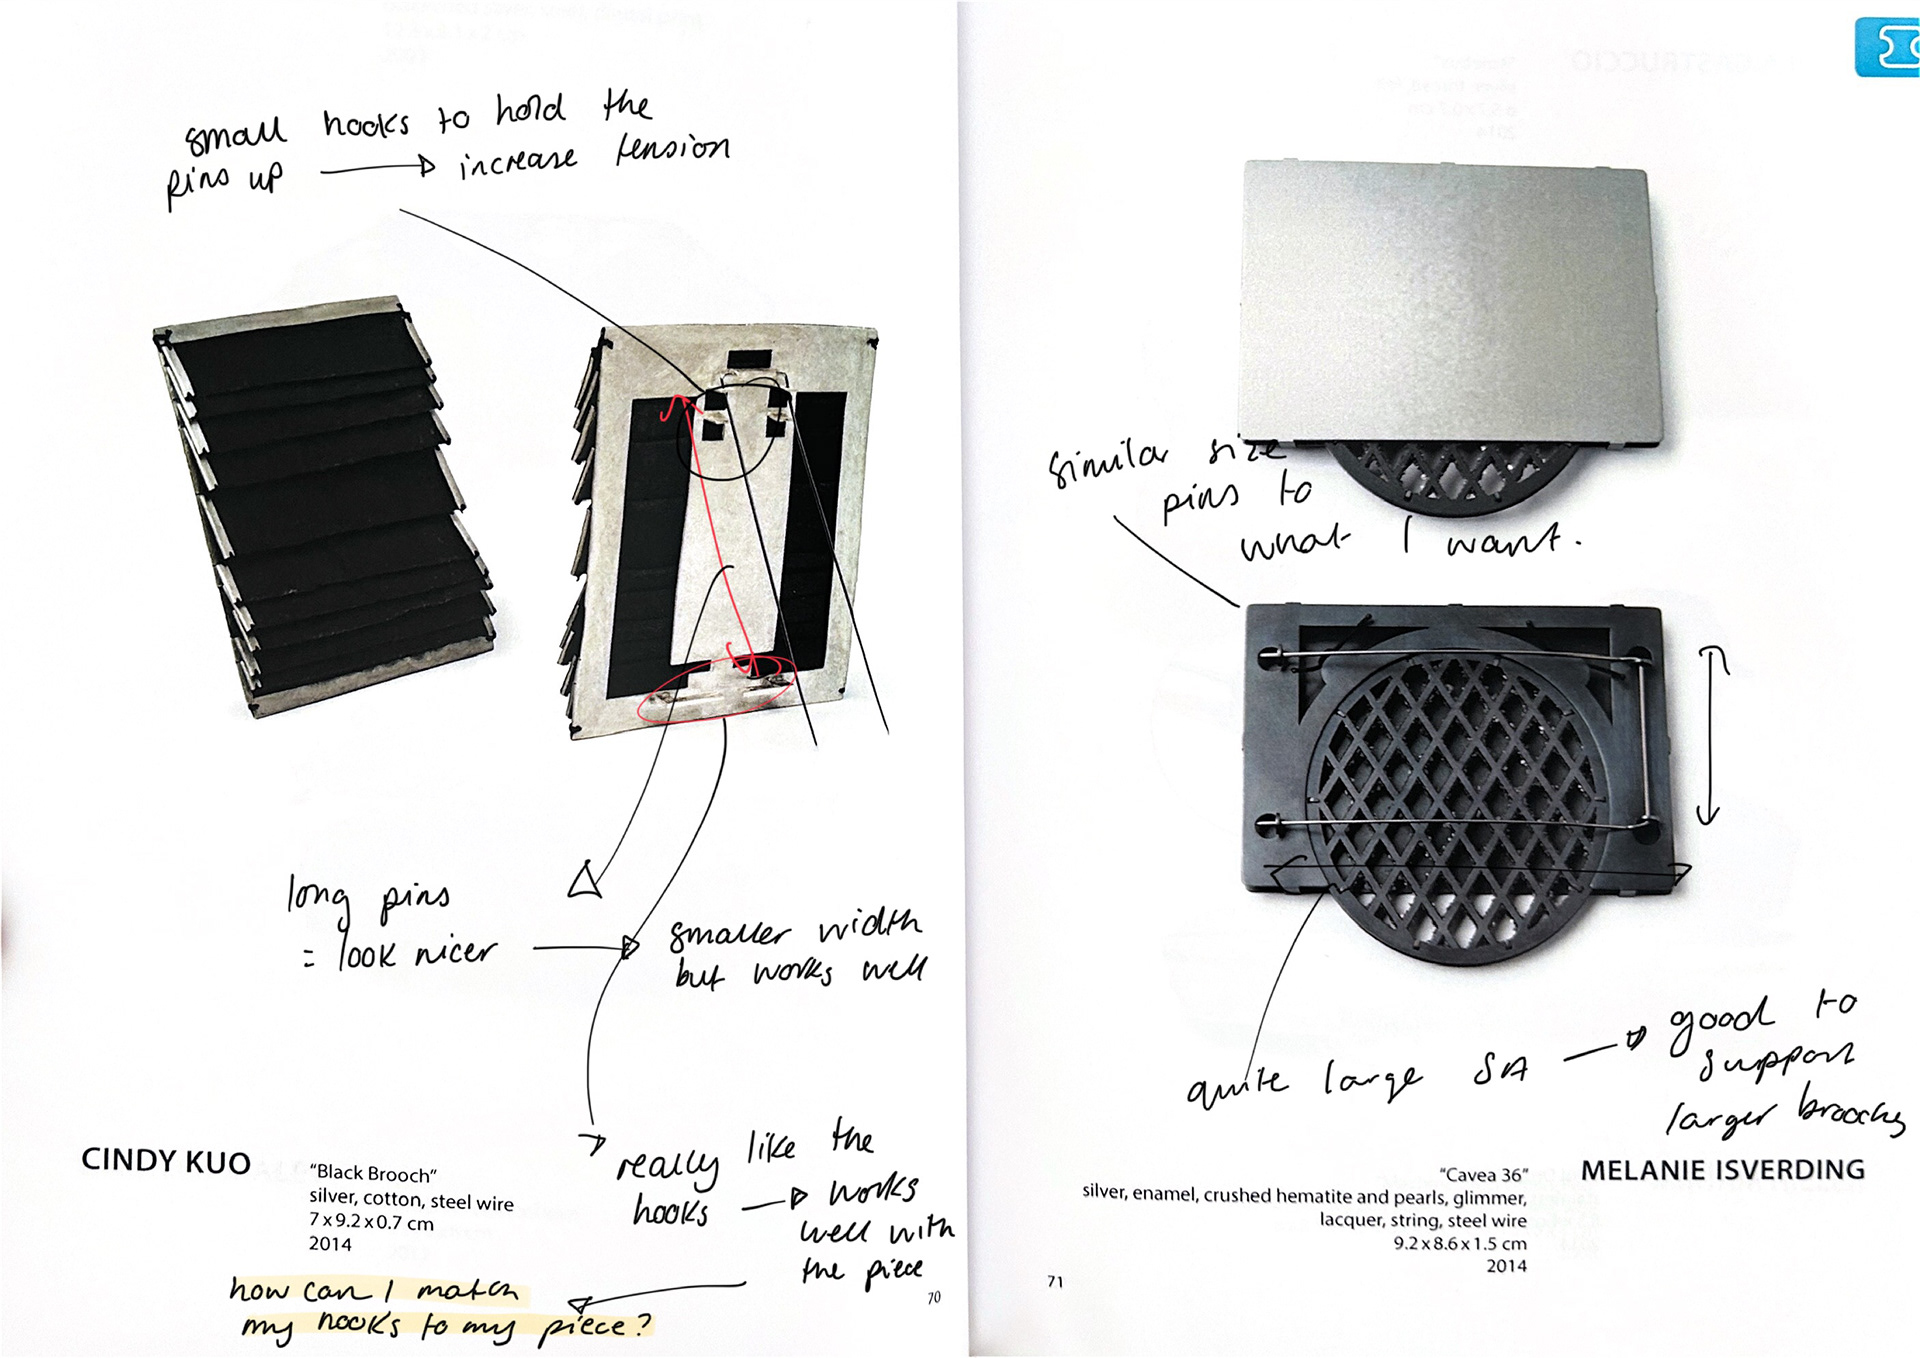 small hooks to hold the
pins up → increase tension
long pins
= look nicer
smaller width
but works well
CINDY KUO
"Black Brooch"
silver, cotton, steel wire
7 x 9.2 x 0.7 cm
2014
really like the
hooks → works
well with
the piece
how can I match
my hooks to my piece?
70
similar size
pins to
what I want.
quite large SA → good to
support
larger broochs
MELANIE ISVERDING
"Cavea 36"
silver, enamel, crushed hematite and pearls, glimmer,
lacquer, string, steel wire
9.2 x 8.6 x 1.5 cm
2014
71